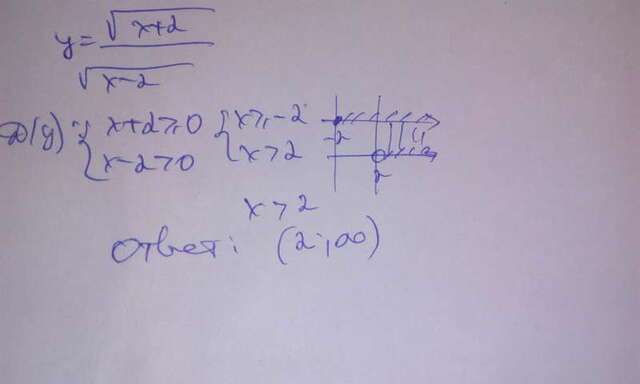 y = √(x+2)
√(x−2)
D(y): { x+2 ⩾ 0 { x ⩾ −2
{ x−2 > 0 { x > 2
−2
2
x > 2
Ответ: (2; ∞)